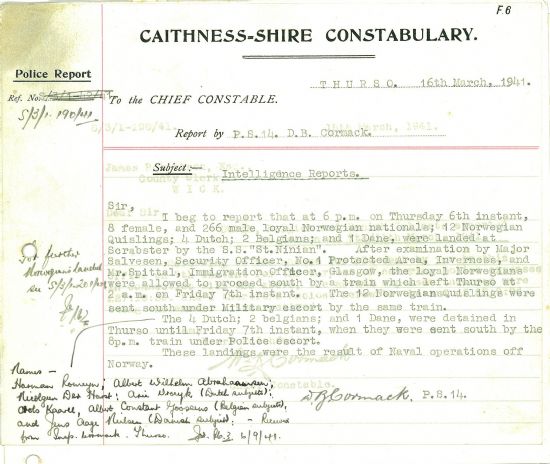 F.6
CAITHNESS-SHIRE CONSTABULARY.
Police Report
THURSO. 16th March, 1941.
Ref. No.
To the CHIEF CONSTABLE.
S/3/1-190/41
S/3/1-190/41.
Report by P.S.14. D.B. Cormack.
Subject:— Intelligence Reports.
WICK.
Sir,
I beg to report that at 6 p.m. on Thursday 6th instant,
8 female, and 266 male loyal Norwegian nationals; 12 Norwegian
Quislings; 4 Dutch; 2 Belgians; and 1 Dane, were landed at
Scrabster by the S.S."St.Ninian". After examination by Major
Salvesen, Security Officer, No.1 Protected Area, Inverness, and
Mr.Spittal, Immigration Officer, Glasgow, the loyal Norwegians
were allowed to proceed south by a train which left Thurso at
2 a.m. on Friday 7th instant. The 12 Norwegian Quislings were
sent south under Military escort by the same train.
The 4 Dutch; 2 belgians; and 1 Dane, were detained in
Thurso until Friday 7th instant, when they were sent south by the
8p.m. train under Police escort.
These landings were the result of Naval operations off
Norway.
D.B.Cormack. P.S.14.
For further
Norwegians landed
see S/3/1-
Names—
Albert Wilhelm
(Dutch subjects);
Albert Constant Goossens (Belgian subjects),
and Jens Aage Nielsen (Danish subject)
from Insp. Cormack. Thurso.